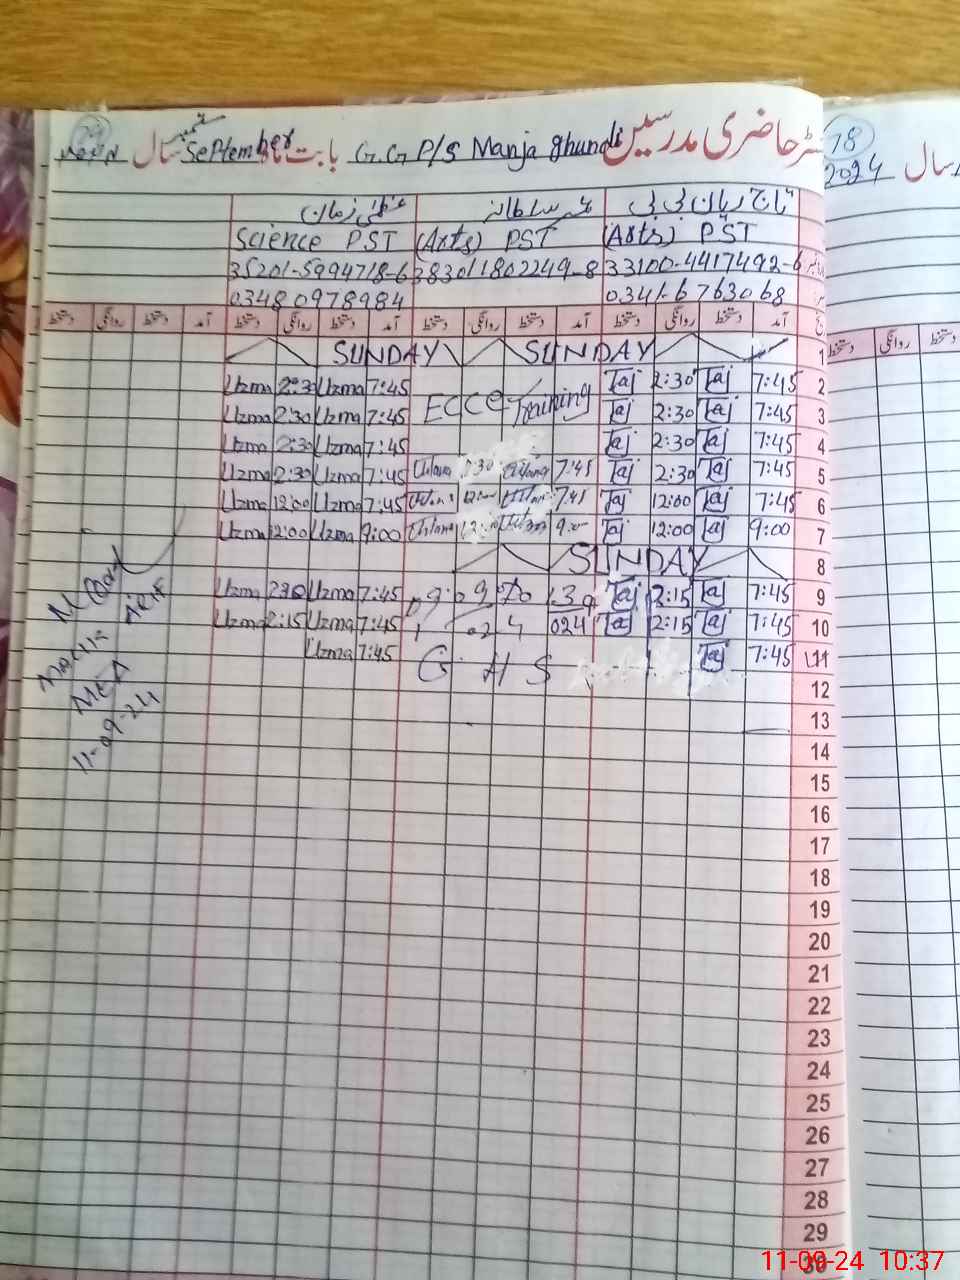 رجسٹر حاضری مدرسین G.G P/S Manja ghundi بابت ماہ September ستمبر سال
تاج زمان بی بی
عظمیٰ زمان
(Arts) PST (Arts) PST Science PST
33100-4417492-6 38301 1802249-8 35201-5994718-6
0341-6763068 03480978984
آمد دستخط روانگی دستخط آمد دستخط روانگی دستخط آمد دستخط روانگی دستخط آمد دستخط روانگی دستخط
1 SUNDAY SUNDAY
2 7:45 Taj 2:30 Taj 7:45 Uzma 2:30 Uzma
ECCE Training
3 7:45 Taj 2:30 Taj 7:45 Uzma 2:30 Uzma
4 7:45 Taj 2:30 Taj 7:45 Uzma 2:30 Uzma
5 7:45 Taj 2:30 Taj 7:45 7:45 Uzma 2:30 Uzma
6 7:45 Taj 12:00 Taj 7:45 7:45 Uzma 12:00 Uzma
7 9:00 Taj 12:00 Taj 9:00 9:00 Uzma 12:00 Uzma
8 SUNDAY
9 7:45 Taj 2:15 Taj 7:45 Uzma 2:30 Uzma
10 7:45 Taj 2:15 Taj 7:45 Uzma 2:15 Uzma
11 7:45 Taj G H S 7:45 Uzma
12
13
14
15
16
17
18
19
20
21
22
23
24
25
26
27
28
29
30
MEA
11-09-24
78
2024 سال
دستخط روانگی دستخط
11-09-24 10:37